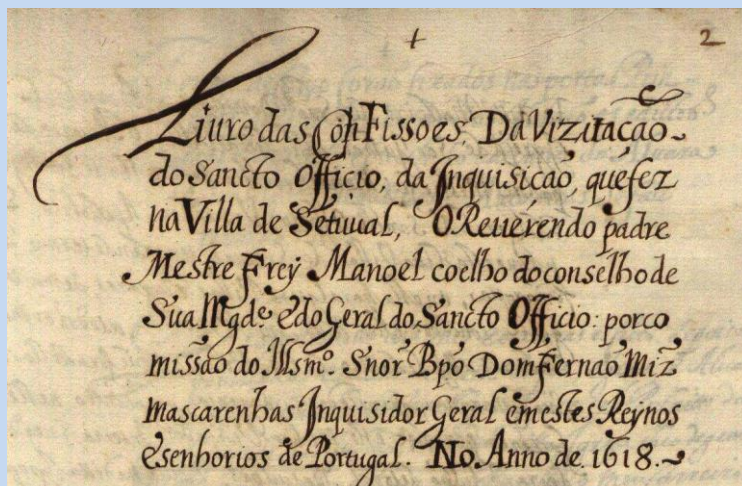 + 2
Liuro das Confissoes, Da Vizitação
do Sancto Officio, da Inquisicão, que fez
na Villa de Setuual, O Reuérendo padre
Mestre Frey Manoel coelho do conselho de
Sua Mgde. e do Geral do Sancto Officio: por co
missão do Illsmo. Snor Bpo Dom Fernão Miz
mascarenhas Inquisidor Geral em estes Reynos
e senhorios de Portugal. No Anno de 1618.